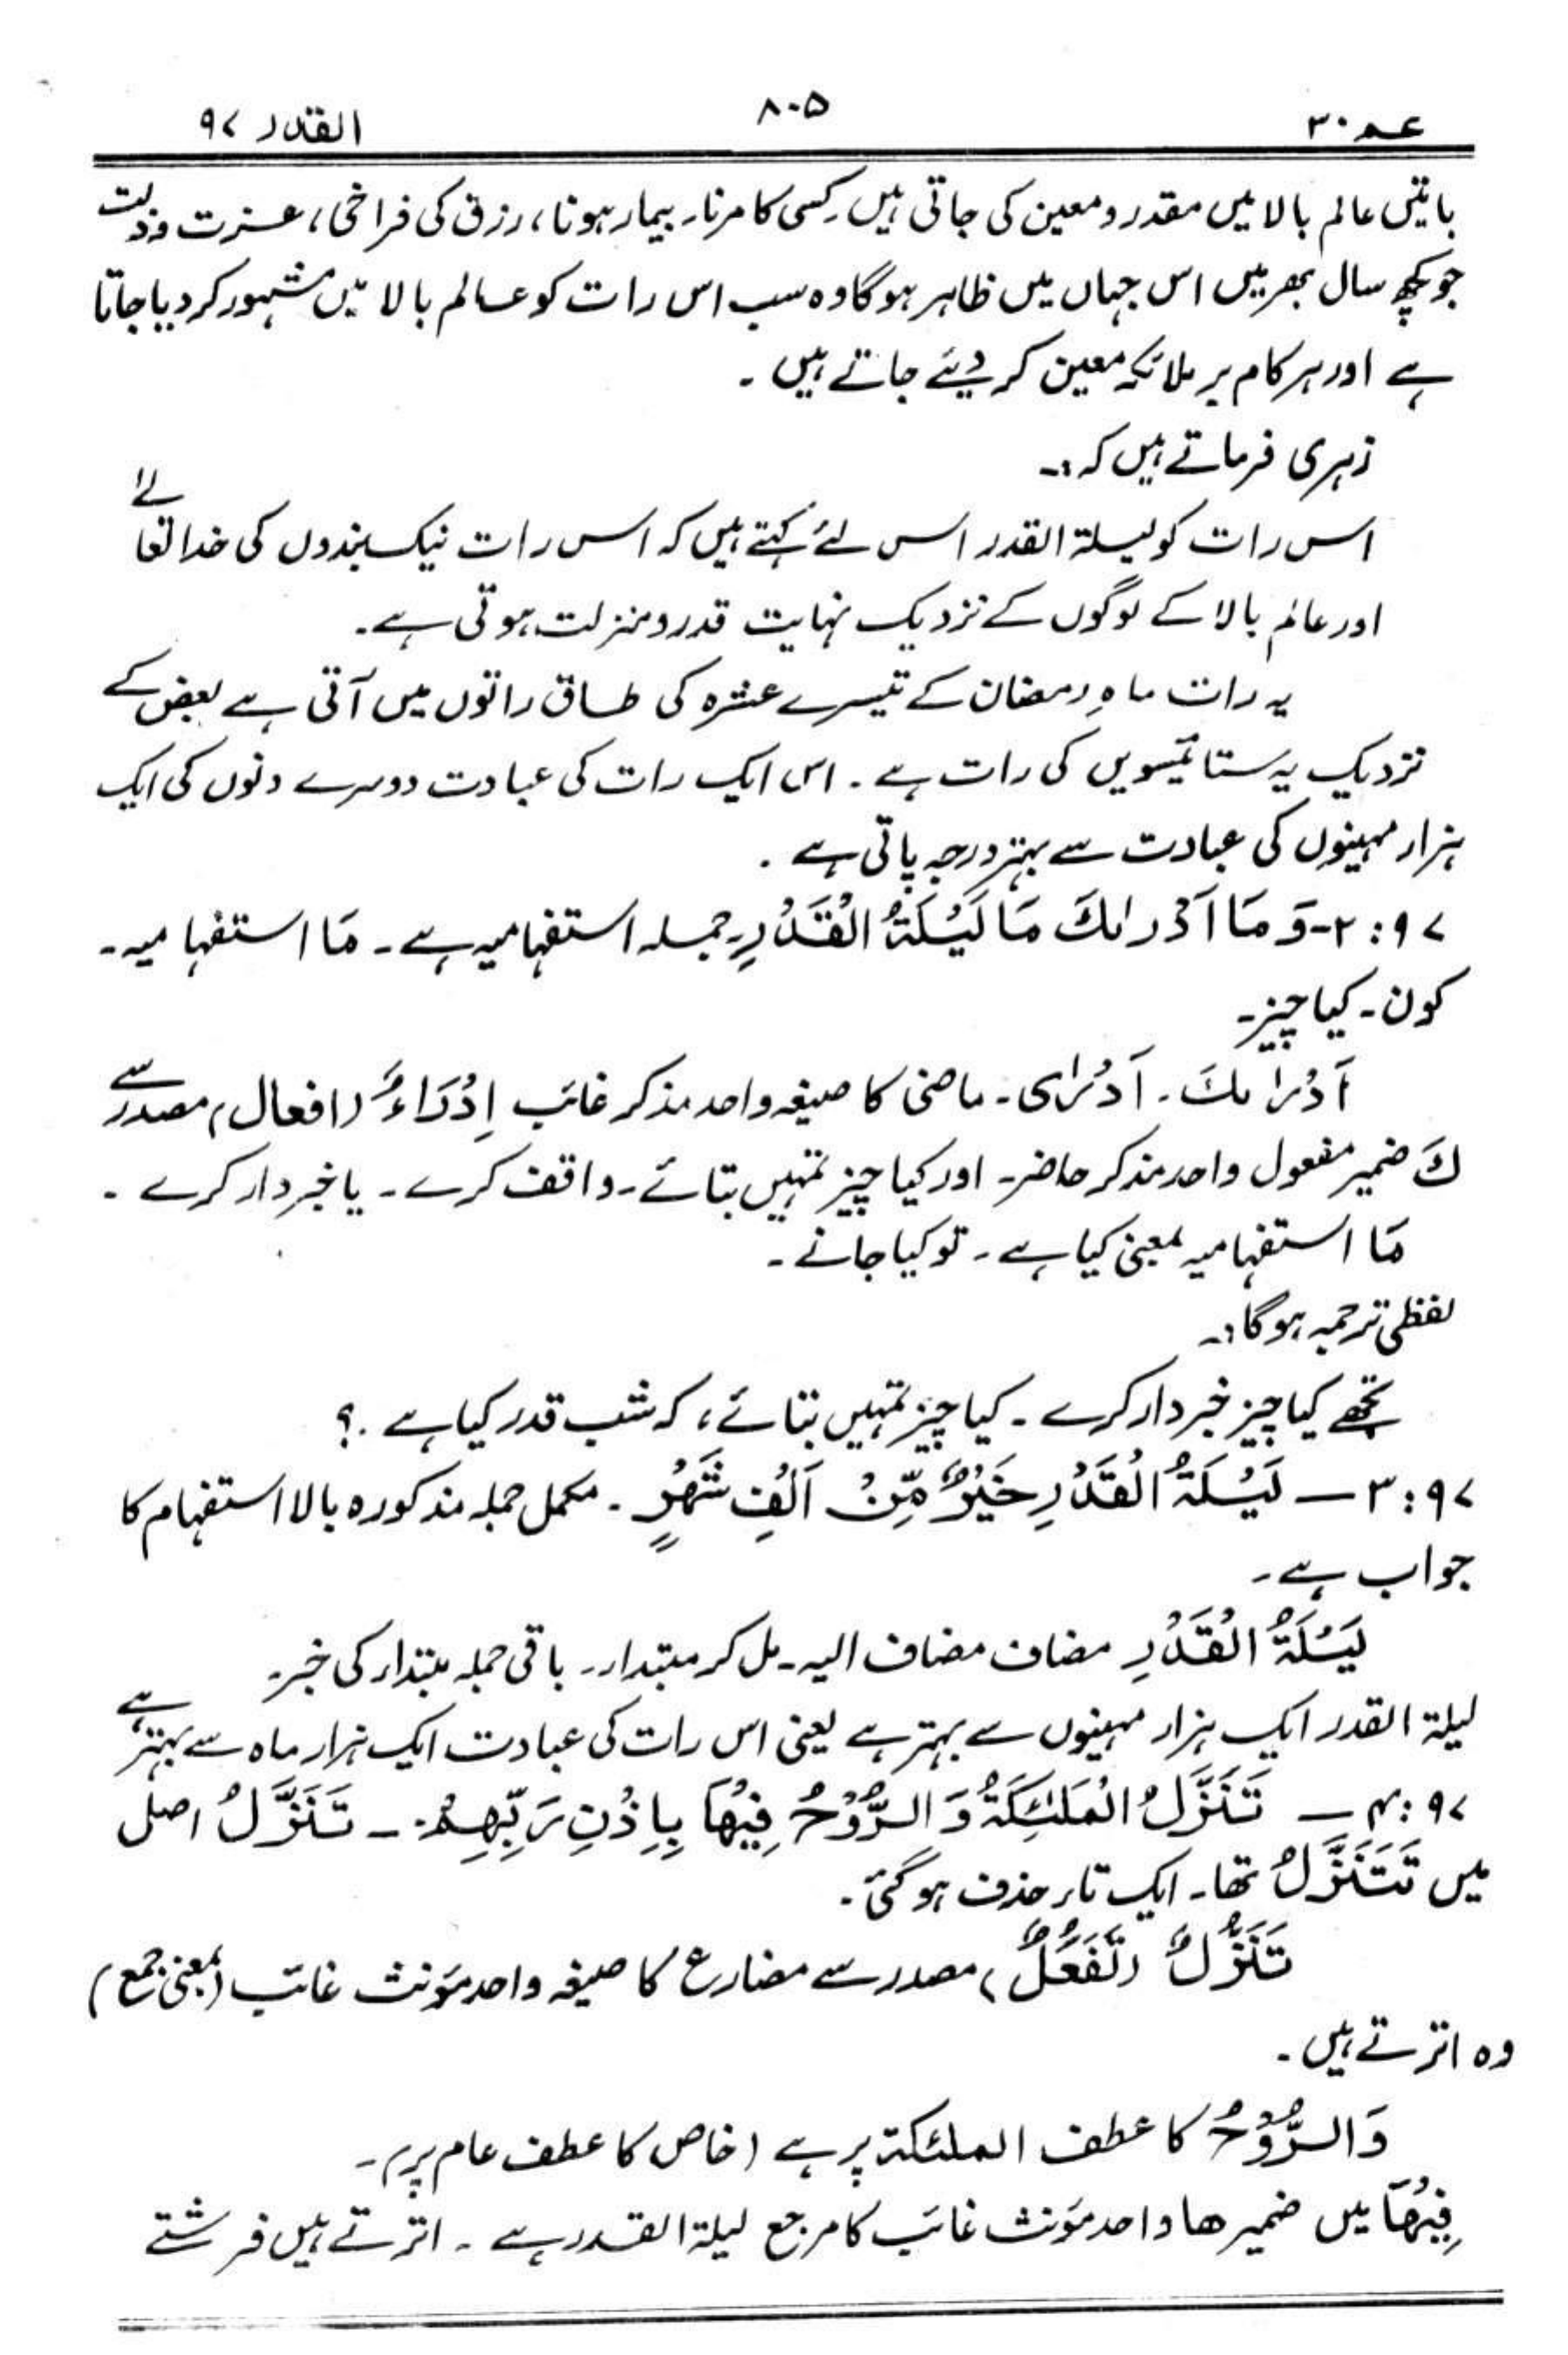 عم ۳۰ ۸۰۵ القدر ۹۷
باتیں عالم بالا میں مقدر و معین کی جاتی ہیں۔ کسی کا مرنا۔ بیمار ہونا، رزق کی فراخی، عزت و ذلت
جو کچھ سال بھر میں اس جہاں میں ظاہر ہوگا وہ سب اس رات کو عالم بالا میں مشہور کر دیا جاتا
ہے اور ہر کام پر ملائکہ معین کر دیئے جاتے ہیں ۔
زہری فرماتے ہیں کہ :۔
اس رات کو لیلۃ القدر اس لئے کہتے ہیں کہ اس رات نیک بندوں کی خدا تعالےٰ
اور عالم بالا کے لوگوں کے نزدیک نہایت قدر و منزلت ہوتی ہے۔
یہ رات ماہِ رمضان کے تیسرے عشرہ کی طاق راتوں میں آتی ہے بعض کے
نزدیک یہ ستائیسویں کی رات ہے ۔ اس ایک رات کی عبادت دوسرے دنوں کی ایک
ہزار مہینوں کی عبادت سے بہتر درجہ پاتی ہے ۔
۹۷ : ۲۔ وَ مَا اَدْرٰىكَ مَا لَيْلَةُ الْقَدْرِ۔ جملہ استفہامیہ ہے ۔ مَا استفہامیہ۔
کون۔ کیا چیز۔
اَدْرٰىكَ ۔ اَدْرٰى ۔ ماضی کا صیغہ واحد مذکر غائب اِدْرَاءٌ (افعال) مصدر سے
كَ ضمیر مفعول واحد مذکر حاضر۔ اور کیا چیز تمہیں بتائے۔ واقف کرے ۔ یا خبردار کرے ۔
مَا استفہامیہ بمعنی کیا ہے ۔ تو کیا جانے ۔
لفظی ترجمہ ہوگا :۔
تجھے کیا چیز خبردار کرے ۔ کیا چیز تمہیں بتائے، کہ شب قدر کیا ہے ۔؟
۹۷ : ۳ — لَيْلَةُ الْقَدْرِ خَيْرٌ مِّنْ اَلْفِ شَهْرٍ ۔ مکمل جملہ مذکورہ بالا استفہام کا
جواب ہے ۔
لَيْلَةُ الْقَدْرِ مضاف مضاف الیہ۔ مل کر مبتداء۔ باقی جملہ مبتداء کی خبر۔
لیلۃ القدر ایک ہزار مہینوں سے بہتر ہے یعنی اس رات کی عبادت ایک ہزار ماہ سے بہتر ہے
۹۷ : ۴ — تَنَزَّلُ الْمَلٰئِكَةُ وَ الرُّوْحُ فِيْهَا بِاِذْنِ رَبِّهِمْ ۔ تَنَزَّلُ اصل
میں تَتَنَزَّلُ تھا۔ ایک تاء حذف ہوگئی ۔
تَنَزُّلٌ (تَفَعُّلٌ) مصدر سے مضارع کا صیغہ واحد مؤنث غائب (بمعنی جمع)
وہ اترتے ہیں ۔
وَالرُّوْحُ کا عطف الملئکۃ پر ہے (خاص کا عطف عام پر)۔
فِيْهَا میں ضمیر ھا واحد مؤنث غائب کا مرجع لیلۃ القدر ہے ۔ اترتے ہیں فرشتے